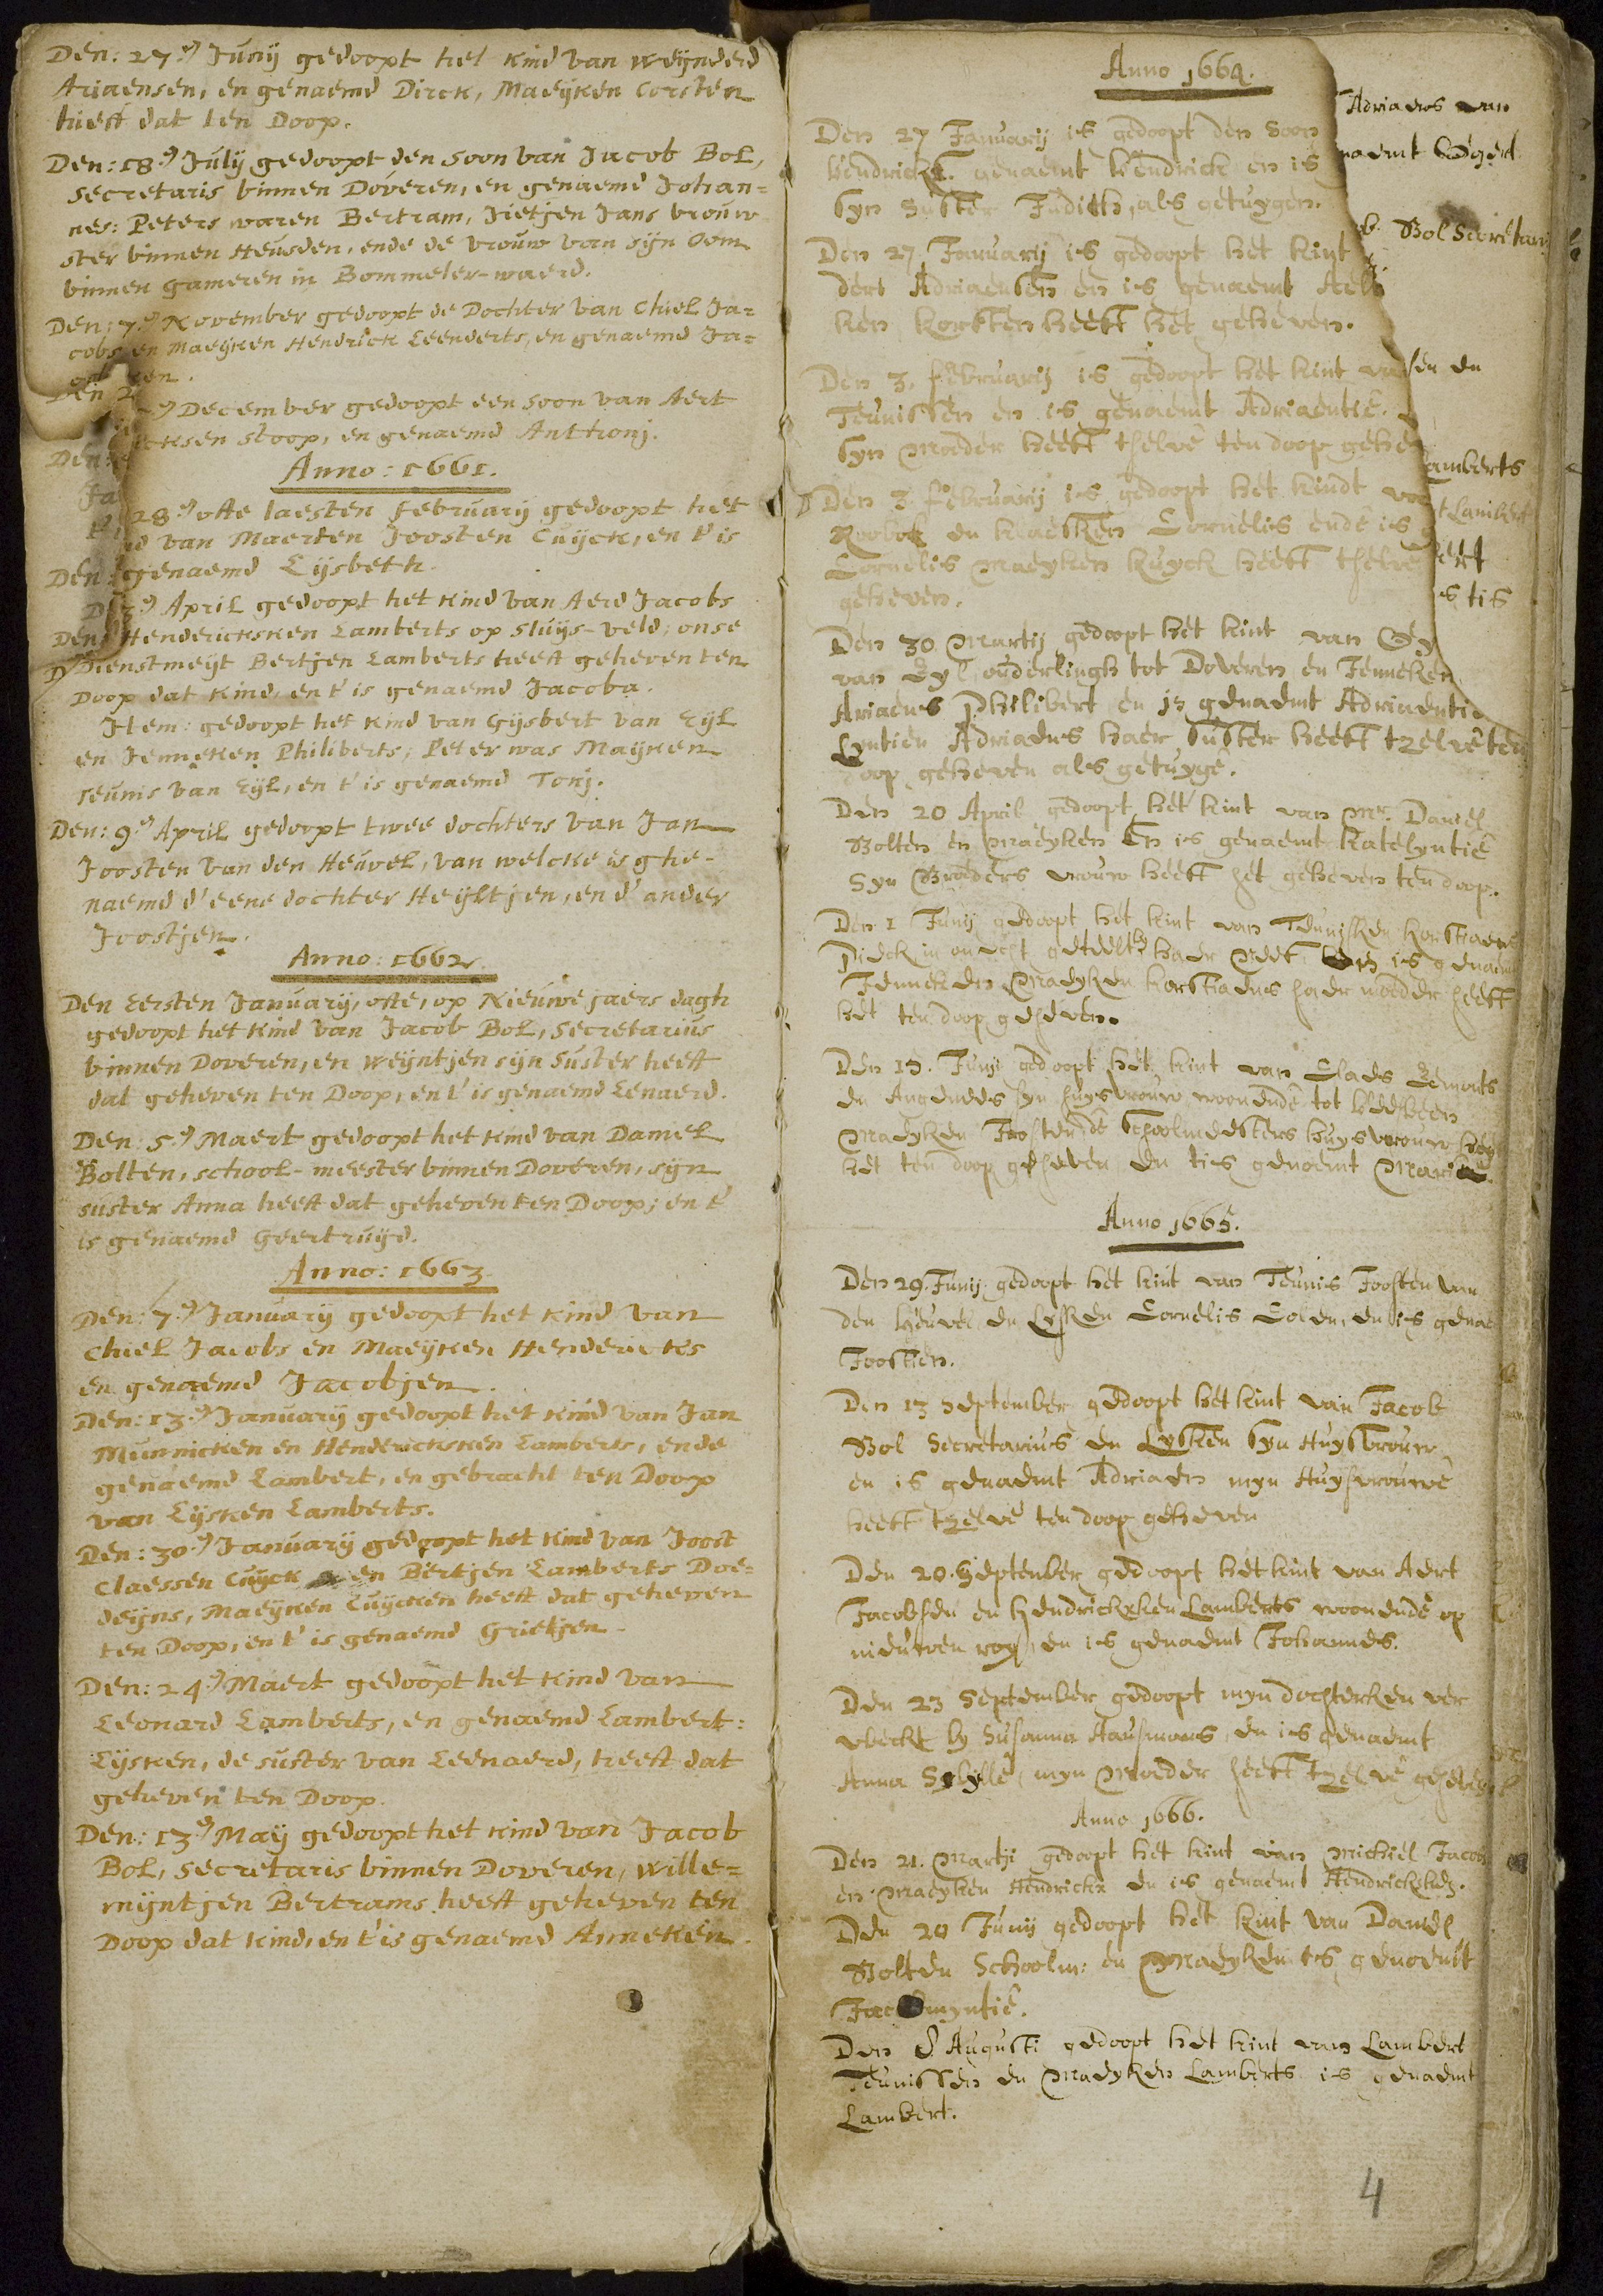 Den: 27.en Junij gedoopt het kind van Weijnderd
Ariaensen, en genaemd Dirck, Maeijken Corsten
hieft dat ten Doop.
Den: 18.en Julij gedoopt den soon van Jacob Bol,
secretaris binnen Doveren, en genaemd Johan=
nes: Peters waren Bertram, Jietjen Jans vrouw
ster binnen Heusden, ende de vrouw van sijn Oom
binnen Gameren in Bommeler-waerd.
Den: 7.en November gedoopt de Dochter van Chiel Ja=
cobs en Maeijken Hendrick Leenderts, en genaemd Ja=
Den 2
December gedoopt een soon van Aert
cksen stoop, en genaemd Anthonj.
Den:
Anno: 1661.
Ja
28.en ofte laesten february gedoopt het
van Maerten Joosten Cuijck, en t' is
Den genaemd Lijsbeth.
April gedoopt het kind van Aerd Jacobs
Den Hendericksken Lamberts op Sluijs-veld; onse
Dienstmeijt Bertjen Lamberts heeft geheven ten
Doop dat kind, en t' is genaemd Jacoba.
Item: gedoopt het kind van Gijsbert van Eijl
en Jenneken Philiberts; Peter was Maijken
teunis van Eijl, en t' is genaemd Tonj.
Den: 9.en April gedoopt twee dochters van Jan
Joosten van den Heuvel, van welcke is ghe-
naemd d'eene dochter Heijltjen, en d'ander
Joostjen.
Anno: 1662.
Den Eersten January, ofte, op Nieuwe jaers dagh
gedoopt het kind van Jacob Bol, Secretarius
binnen Doveren, en Weijntjen sijn suster heeft
dat geheven ten Doop, en t' is genaemd Lenaerd.
Den: 5.en Maert gedoopt het kind van Daniel
Bolten, school-meester binnen Doveren, sijn
suster Anna heeft dat geheven ten Doop; en t'
is genaemd Geertruijd.
Anno: 1663
Den: 7.en January gedoopt het kind van
Chiel Jacobs en Maeijken Hendericks
en genaemd Jacobjen.
Den: 13.en January gedoopt het kind van Jan
Munnicken en Hendericksken Lamberts, ende
genaemd Lambert, en gebracht ten Doop
van Lijsken Lamberts.
Den: 30.en January gedoopt het kind van Joost
Claessen Cuijck en Bertjen Lamberts Doe=
deijns, Maeijken Cuijcken heeft dat geheven
ten Doop, en t' is genaemd Grietjen.
Den: 24.en Maert gedoopt het kind van
Leonard Lamberts, en genaemd Lambert:
Lijsken, de suster van Leenaerd, heeft dat
geheven ten Doop.
Den: 13.en Maij gedoopt het kind van Jacob
Bol, Secretaris binnen Doveren, Wille=
mijntjen Bertrams heeft geheven ten
Doop dat kind, en t' is genaemd Anneken.
Anno 1664.
Den 27 Januarij is gedoopt den Soon
Hendrickx. genaemt Hendrick en is
syn Suster Judith, als getuygen.
Den 27 Januarij is gedoopt het kint
dert Adriaensen en is genaemt Ael
ken korsten heeft het geheven.
Den 3. februarij is gedoopt het kint va
Teunissen en is genaemt Adriaentie.
Syn Moeder heeft t'selve ten doop gehe
Den 3 februarij is gedoopt het kindt va
Roobol en klaesken Cornelis ende is
Cornelis Maeyken kuyck heeft t'selve
geheven.
Den 30 Martij gedoopt het kint van Gy
van Eyl, ouderlingh tot Doveren en Jenneken
Ariaens Philibert en is genaemt Adriaentie
Lyntien Adriaens haer Suster heeft tzelve ten
doop geheven als getuyge.
Den 20 April gedoopt het kint van Mr. Daniel
Bolten en Maeyken En is genaemt Katelyntie
Syn Broeders vrouw heeft het geheven ten doop.
Den 1 Junij gedoopt het kint van Teunisken korstiaens
Dieck in onecht geteelt haer is genaemt
Jenneken Maeyken korstiaens haer moeder heeft
het ten doop geheven.
Den 15. Junij gedoopt het kint van Claes
en syn huysvrouw woonende tot
Maeyken Joosten de Schoolmeesters huysvrouw
het ten doop geheven, en tis genoemt Maria
Anno 1665.
Den 29. Junij, gedoopt het kint van Teunis Joosten van
den Heuvel, en Lysken Cornelis en is genae
Joostien.
Den 13 September gedoopt het kint van Jacob
Bol Secretarius en Lysken syn Huysvrouw
en is genaemt Adriaen myn Huysvrouwe
heeft tzelve ten doop geheven
Den 20. September gedoopt het kint van Aert
Jacobsen en hendrickxken Lamberts woonende op
nieuwen en is genaemt Johannes.
Den 23 September gedoopt myn dochterken ver
by Susanna en is genaemt
Anna Sybille, myn Moeder heeft tzelve geheven
Anno 1666.
Den 21. Martij gedoopt het kint van Michiel Jacobs
en Maeyken Hendrickx en is genaemt Hendrickxken.
Den 20 Junij gedoopt het kint van Daniel
Bolten Schoolm: en Maeyken, tis genoemt
Jacomyntie.
Den 8 Augusti gedoopt het kint van Lambert
Teunissen en Maeyken Lamberts is genaemt
Lambert.
4
Adriaens van
naemt
Bol Secretari
sen en
amberts
t Lambert
s tis